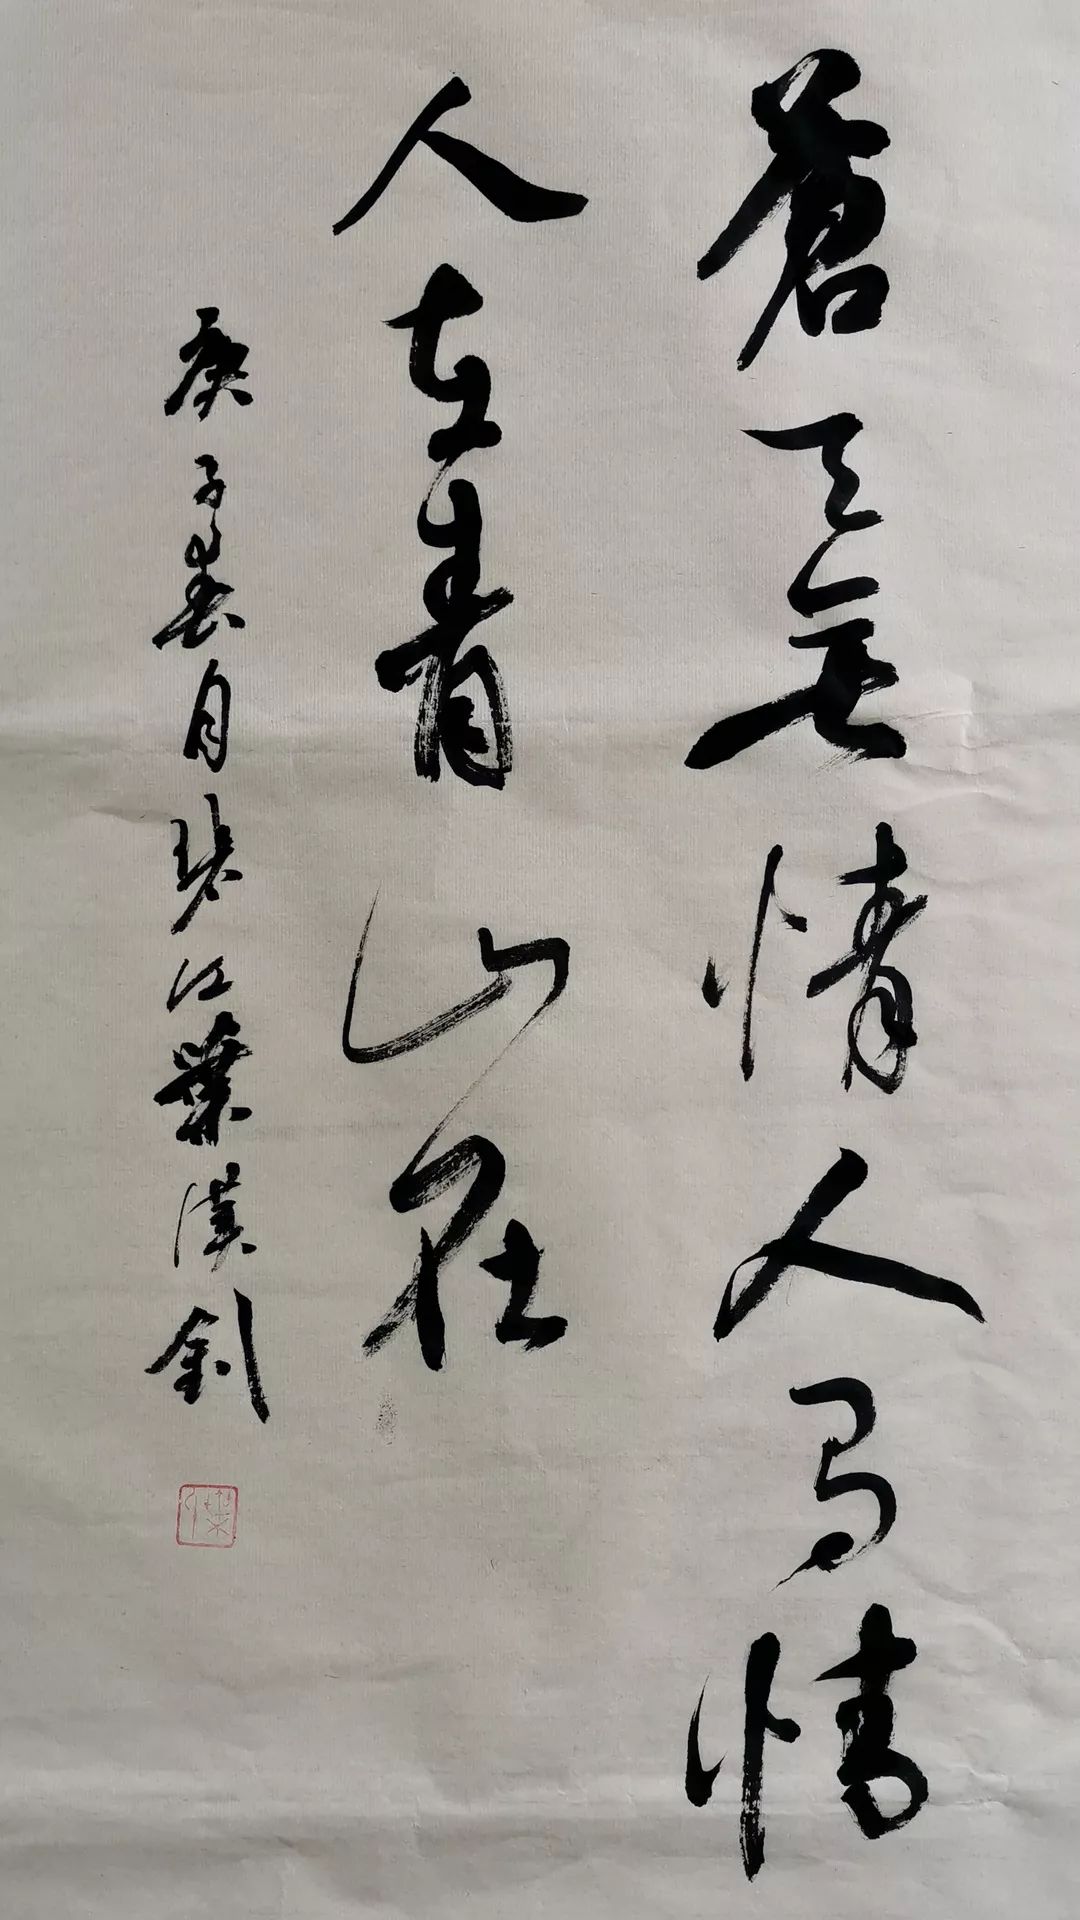 蒼天無情人有情
人在青山在
庚子春月碧江葉漢釗